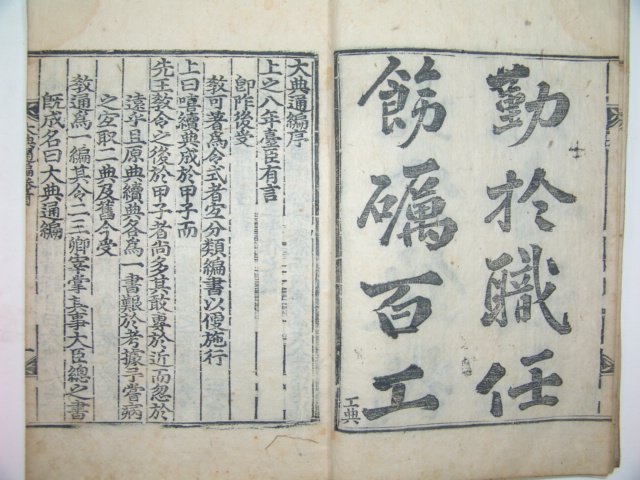 勤於職任
飭礪百工
工典
大典通編序
上之八年臺臣有言
卽阼後受
敎可著爲令式者宜分類編書以便施行
上曰嘻續典成於甲子而
先王敎令之後於甲子者尙多其敢專於近而忽於
遠乎且原典續典各爲一書艱於考據予嘗病
之宜取二典及舊今受
敎通爲一編其令一二三卿宰掌其事大臣總之書
旣成名曰大典通編